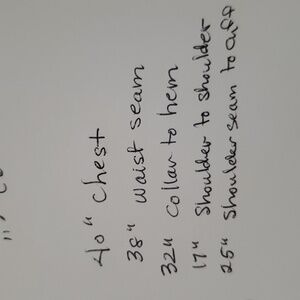 40" chest
38" waist seam
32" collar to hem
17" shoulder to shoulder
25" shoulder seam to cuff